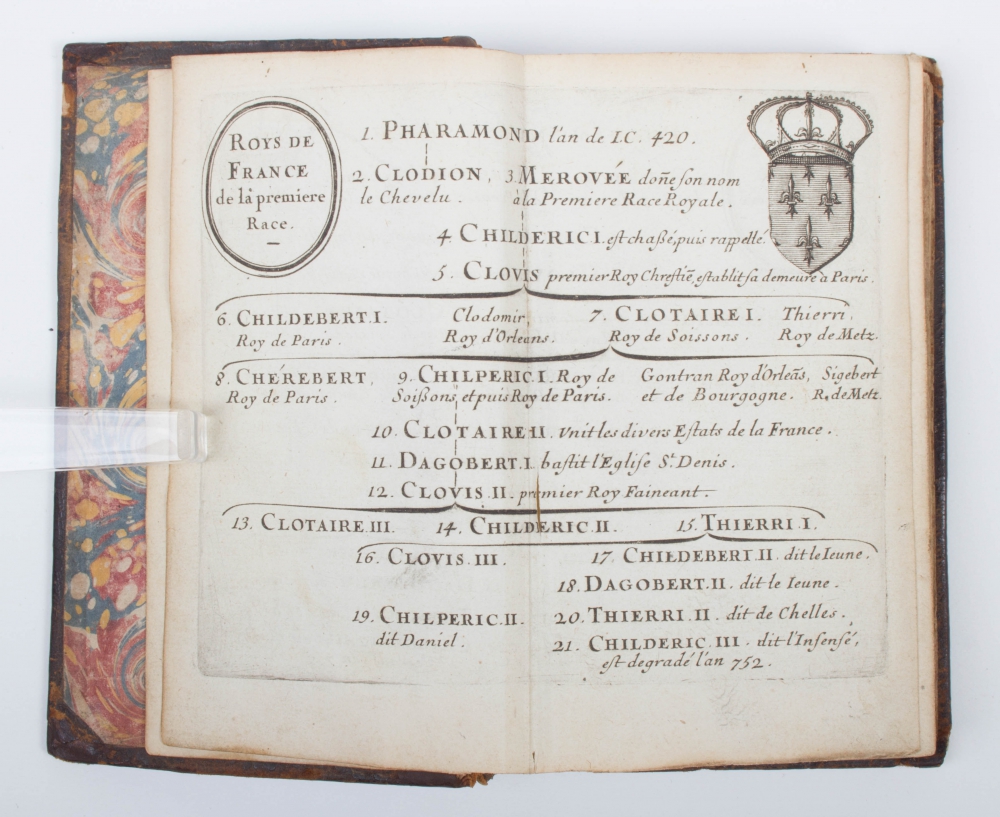 ROYS DE
FRANCE
de la premiere
Race.
1. PHARAMOND l'an de I.C. 420.
2. CLODION, 3. MEROVÉE doñe son nom
le Chevelu. à la Premiere Race Royale.
4. CHILDERIC I. est chaßé, puis rappellé.
5. CLOVIS premier Roy Chrestiẽ, establit sa demeure à Paris.
6. CHILDEBERT. I. Clodomir, 7. CLOTAIRE I. Thierri,
Roy de Paris. Roy d'Orleans. Roy de Soissons. Roy de Metz.
8. CHÉREBERT, 9. CHILPERIC. I. Roy de Gontran Roy d'Orleãs, Sigebert
Roy de Paris. Soißons, et puis Roy de Paris. et de Bourgogne. R. de Metz.
10. CLOTAIRE II. Vnit les divers Estats de la France.
11. DAGOBERT. I. bastit l'Eglise St. Denis.
12. CLOVIS. II. premier Roy Faineant.
13. CLOTAIRE. III. 14. CHILDERIC. II. 15. THIERRI. I.
16. CLOVIS. III. 17. CHILDEBERT. II. dit le Ieune.
18. DAGOBERT. II. dit le Ieune.
19. CHILPERIC. II. 20. THIERRI. II. dit de Chelles.
dit Daniel.
21. CHILDERIC. III. dit l'Insensé,
est degradé l'an 752.